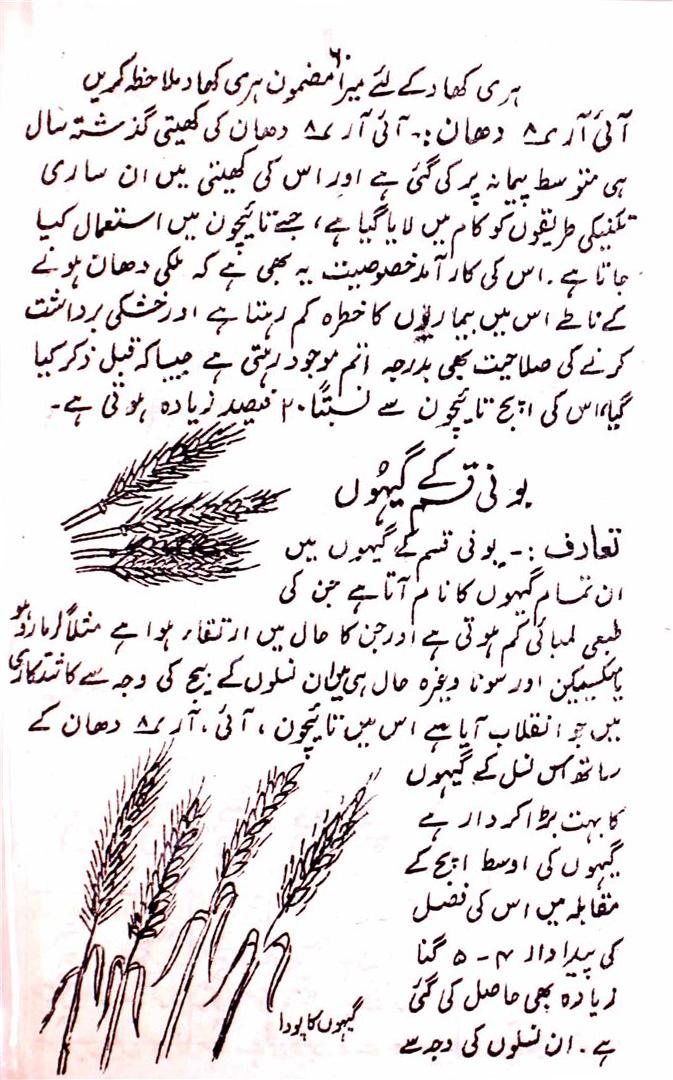 ۶۰
ہری کھاد کے لئے میرا مضمون ہری کھاد ملاحظہ کریں
آئی آر ی ۸ دھان :۔ آئی آر ی ۸ دھان کی کھیتی گذشتہ سال
ہی متوسط پیمانہ پر کی گئی ہے اور اس کی کھیتی میں ان ساری
تکنیکی طریقوں کو کام میں لایا گیا ہے، جسے تائیچون میں استعمال کیا
جاتا ہے۔ اس کی کار آمد خصوصیت یہ بھی ہے کہ ملکی دھان ہونے
کے ناطے اس میں بیماریوں کا خطرہ کم رہتا ہے اور خشکی برداشت
کرنے کی صلاحیت بھی بدرجہ اتم موجود رہتی ہے جیسا کہ قبل ذکر کیا
گیا، اس کی اپج تائیچون سے نسبتاً ۲۰ فیصد زیادہ ہوتی ہے۔
بونی قسم کے گیہوں
تعارف :۔ بونی قسم کے گیہوں میں
ان تمام گیہوں کا نام آتا ہے جن کی
طبعی لمبائی کم ہوتی ہے اور جن کا حال میں ارتقاء ہوا ہے مثلاً لرماروہو
یا میکسیکین اور سونا وغیرہ حال ہی میں ان نسلوں کے بیج کی وجہ سے کاشتکاری
میں جو انقلاب آیا ہے اس میں تائیچون ، آئی ، آر ی ۸ دھان کے
ساتھ اس نسل کے گیہوں
کا بہت بڑا کردار ہے
گیہوں کی اوسط اپج کے
مقابلہ میں اس کی فصل
کی پیداوار ۴ ۔ ۵ گنا
زیادہ بھی حاصل کی گئی
ہے۔ ان نسلوں کی وجہ سے
گیہوں کا پودا